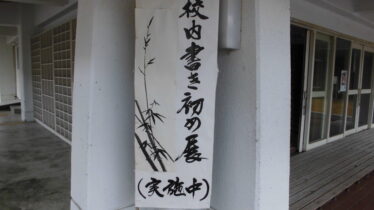 校内書き初め展
(実施中)